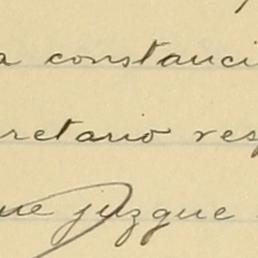 a constanci
cretario res
ue juzgue